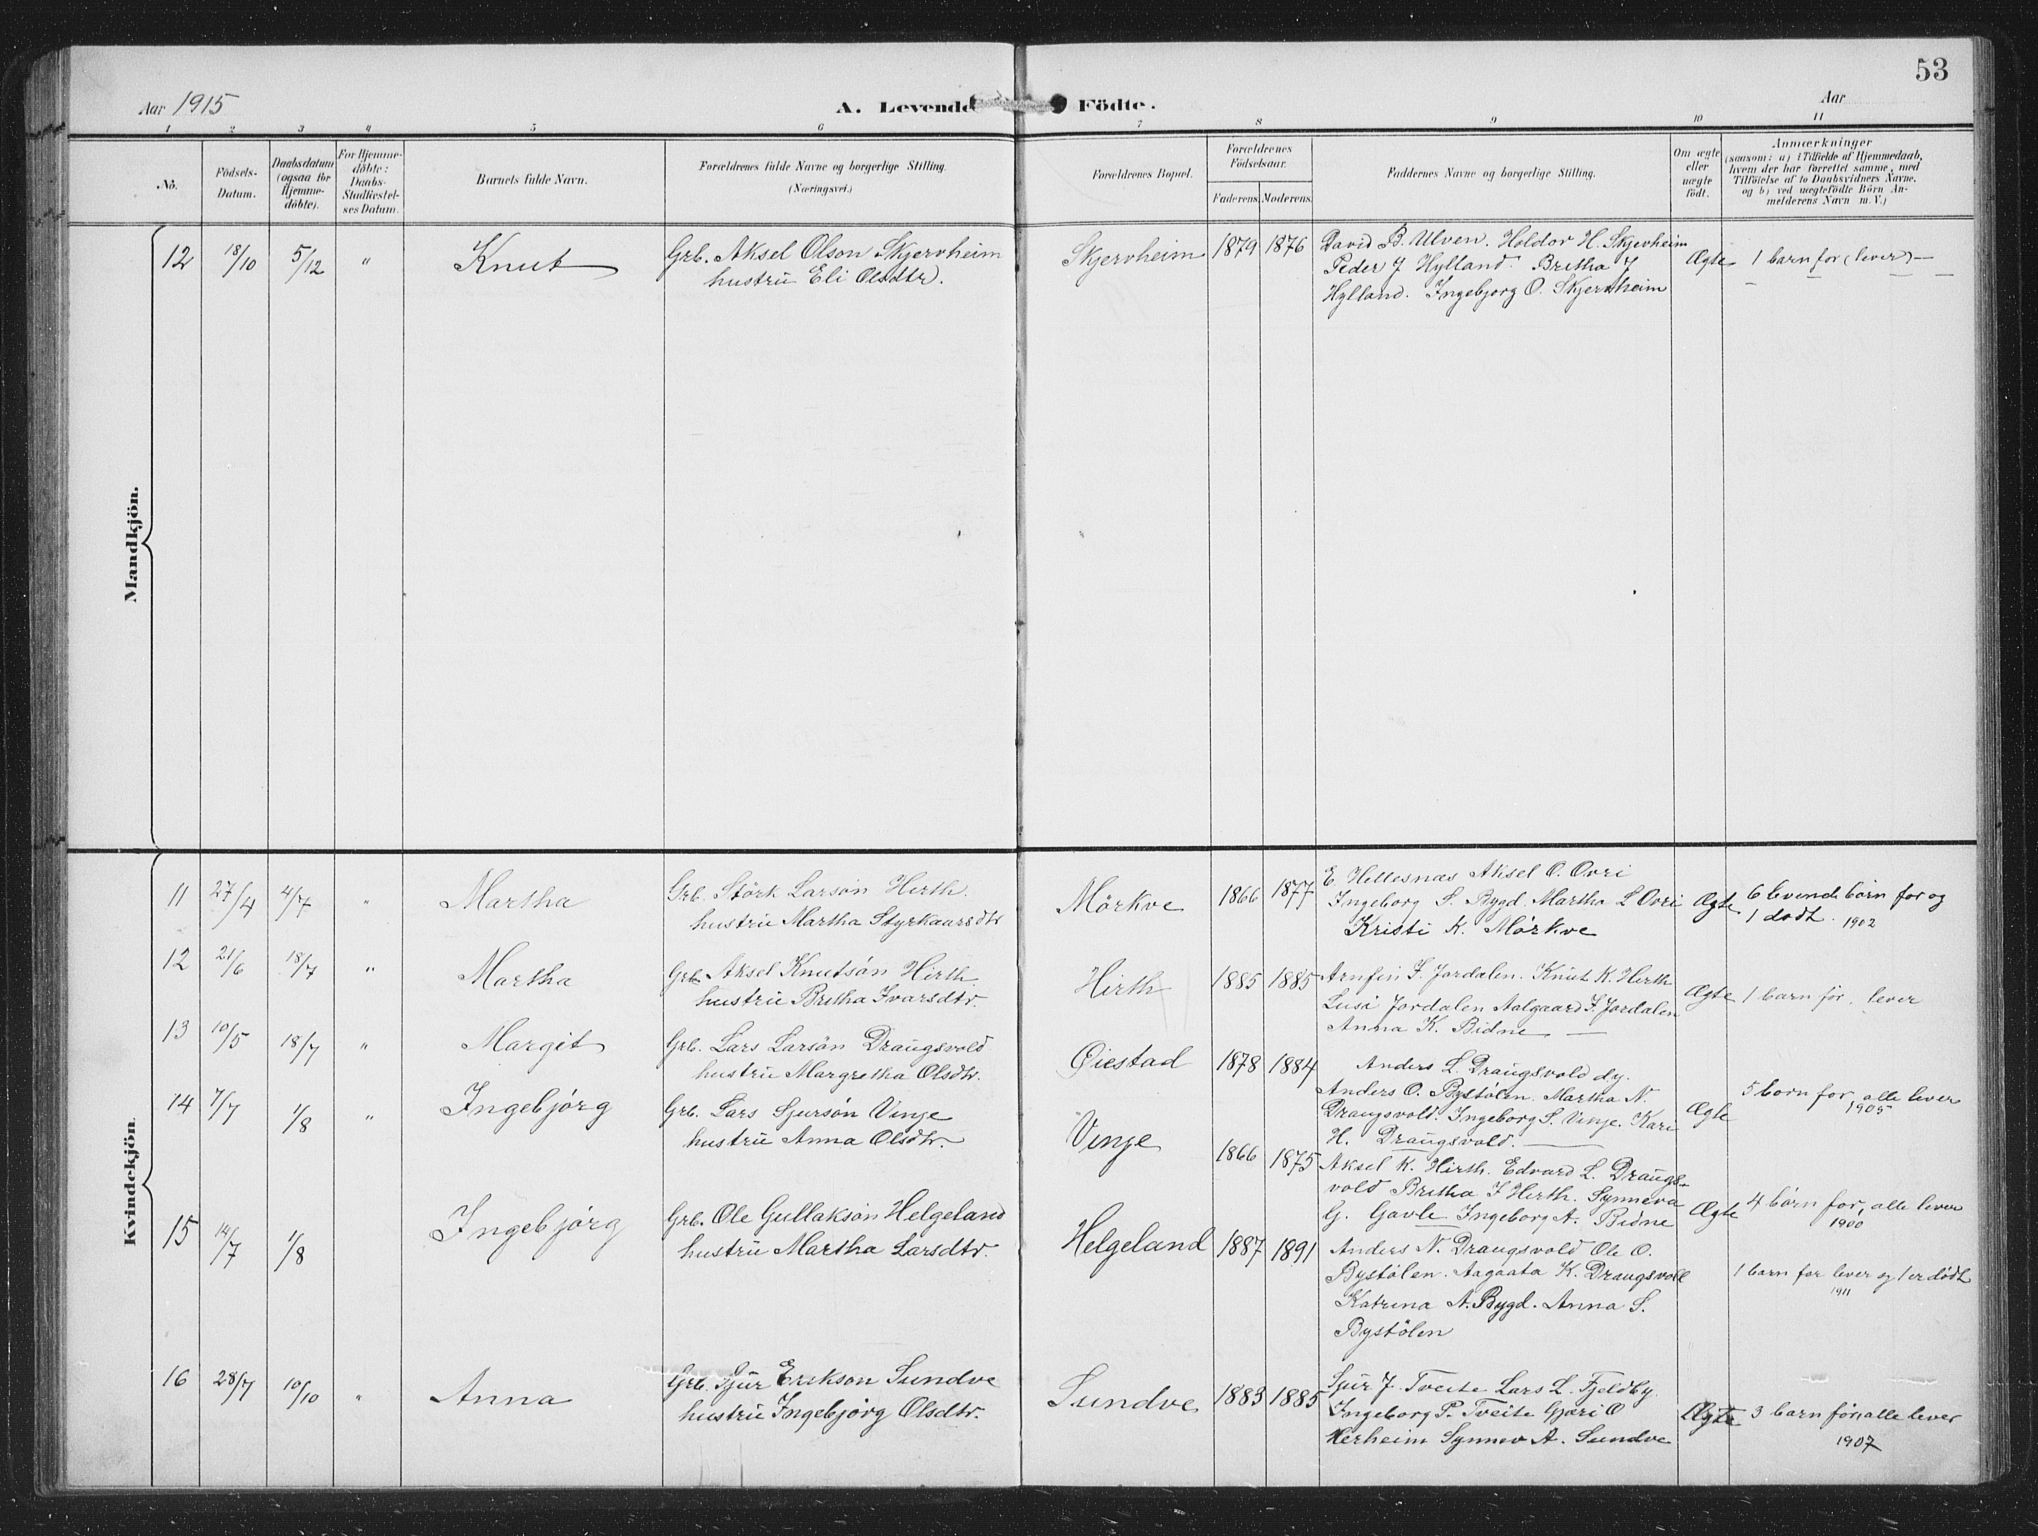 53
Aar 1915
A. Levende Födte.
Aar
1 2 3 4 5 6 7 8 9 10 11
No.
Födsels-
Datum.
Daabsdatum
(ogsaa for
Hjemme-
döbte).
For Hjemme-
döbte:
Daabs-
Stadfæstel-
ses Datum.
Barnets fulde Navn.
Forældrenes fulde Navne og borgerlige Stilling.
(Næringsvei.)
Forældrenes Bopæl.
Forældrenes
Födselsaar.
Faderens. Moderens.
Faddernes Navne og borgerlige Stilling.
Om ægte
eller
uægte
födt.
Anmærkninger
(saasom: a) i Tilfælde af Hjemmedaab,
hvem der har forrettet samme, med
Tilföielse af to Daabsvidners Navne.
og b) ved uægtefödte Börn An-
melderens Navn m. V.)
Mandkjön.
12 18/10 5/12 " Knut Grb. Aksel Olson Skjervheim
hustru Eli Olsdtr.
Skjervheim 1879 1876
David B. Ulven. Holdor H. Skjervheim
Peder J Hylland. Britha J
Hylland. Ingebjorg O. Skjervheim
Ægte 1 barn for (lever) —
Kvindekjön.
11 27/4 4/7 " Martha Grb. Störk Larsön Hirth
hustru Martha Styrkaarsdtr
Mörkve 1866 1877
E Hellesnæs Aksel O. Ovri
Ingeborg S. Bygd. Martha L Ovri
Kristi K. Mörkve
Ægte 6 levende börn for og
1 dödt. 1902
12 21/6 18/7 " Martha Grb. Aksel Knutsön Hirth.
hustru Britha Ivarsdtr.
Hirth 1885 1885
Arnfin I. Jordalen. Knut K. Hirth
Lusi Jordalen Aalgaard I. Jordalen
Anna K. Bidne —
Ægte 1 barn för, lever
13 10/5 18/7 " Margit Grb. Lars Larsön Draugsvold
hustru Margretha Olsdtr.
Öiestad 1878 1884
Anders L. Draugsvold dy.
Anders O. Bystölen. Martha N.
Draugsvold. Ingeborg S. Vinje. Kari
H. Draugsvold. —
Ægte 5 born for, alle lever
1905
14 7/7 1/8 " Ingebjörg Grb. Lars Sjursön Vinje
hustru Anna Olsdtr.
Vinje 1866 1875
Aksel K. Hirth. Edvard L. Draugs-
vold Britha I Hirth. Synneva
G. Gavle Ingeborg A. Bidne
Ægte 4 börn for, alle lever
1900
15 14/7 1/8 Ingebjörg Grb. Ole Gullaksön Helgeland
hustru Martha Larsdtr.
Helgeland 1887 1891
Anders N. Draugsvold Ole O.
Bystölen. Aagaata K. Draugsvoll
Katrina A. Bygd. Anna S.
Bystölen
1 barn for lever og 1 er dödt
1911
16 28/7 10/10 " Anna Grb. Sjur Erikson Sundve
hustru Ingebjörg Olsdtr.
Sundve 1883 1885
Sjur J. Tveite Lars L. Fjeldby.
Ingeborg P. Tveite Gjøri O
Herheim Synnev A. Sundve
Ægte 3 barn för, alle lever
1907